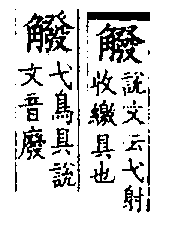 䚨
說文云弋射
收繳具也
䚨
弋鳥具說
文音廢